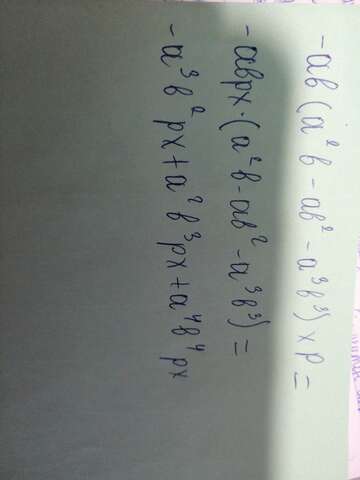 -ab (a²b - ab² - a³b³) x p =
- abpx · (a²b - ab² - a³b³) =
- a³b² px + a²b³px + a⁴b⁴ px